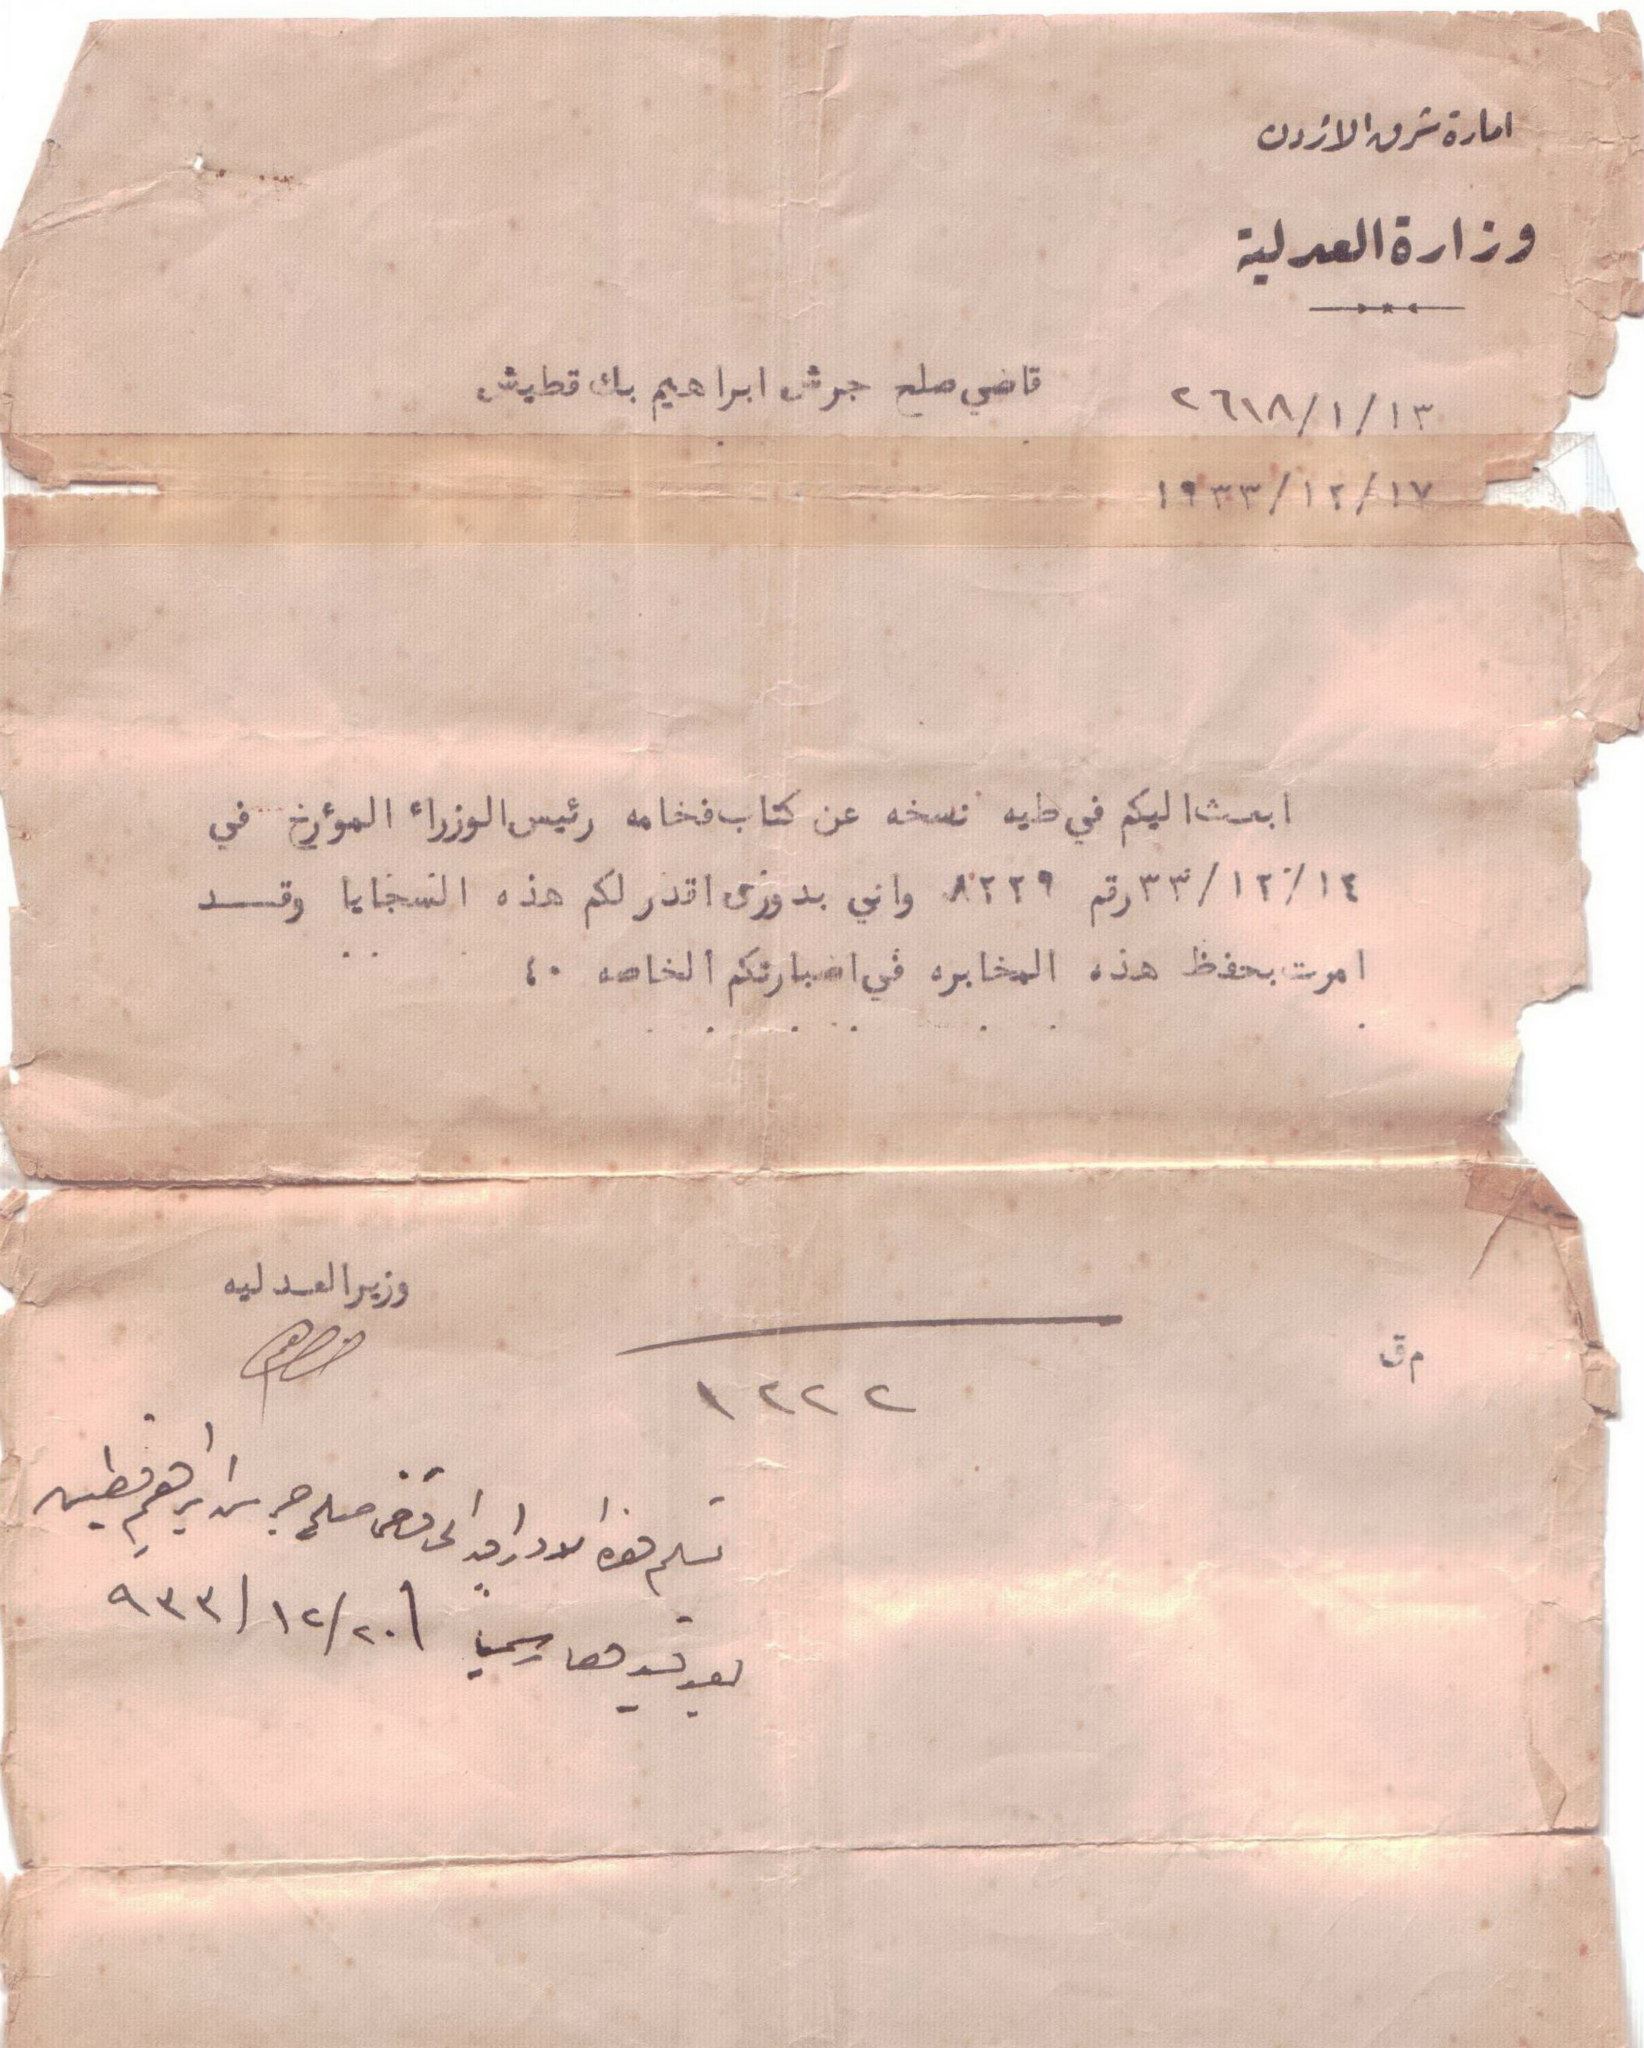 امارة شرق الاردن
وزارة العدلية
٢٦١٨/١/١٣
قاضي صلح جرش ابراهيم بك قطيش
١٩٣٣/١٢/١٧
ابعث اليكم في طيه نسخه عن كتاب فخامه رئيس الوزراء المؤرخ في
٣٣/١٢/١٤ رقم ٨٢٢٩ واني بدوري اقدر لكم هذه السجايا وقد
امرت بحفظ هذه المخابره في اضبارتكم الخاصه ٠٤
وزير العدليه
م ق
١٢٢٢
تسلم هذه الاوراق الى قاضي صلح جرش ابراهيم قطيش
بعد قيدها رسمياً ٩٣٣/١٢/٢٠